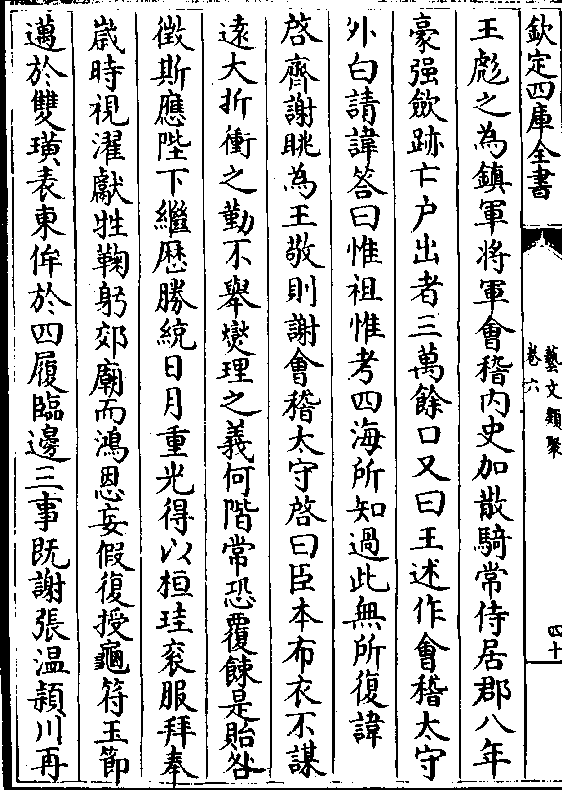 欽定四庫全書
藝文類聚
卷六
四十
王彪之為鎮軍將軍會稽内史加散騎常侍居郡八年
豪强斂跡亡户出者三萬餘口又曰王述作會稽太守
外白請諱答曰惟祖惟考四海所知過此無所復諱
啓齊謝眺為王敬則謝會稽太守啓曰臣本布衣不謀
逺大折衝之勤不舉燮理之義何階常恐覆餗是貽咎
徴斯應陛下繼歴勝統日月重光得以桓珪衮服拜奉
嵗時視濯獻牲鞠躬郊廟而鴻恩妄假復授龜符玉節
邁於雙璜表東侔於四履臨邊三事既謝張温潁川再